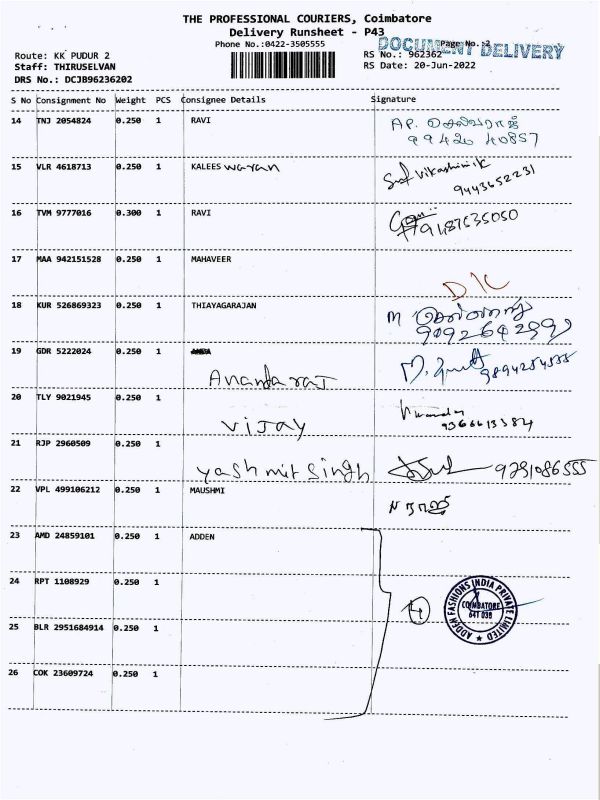 THE PROFESSIONAL COURIERS, Coimbatore
Delivery Runsheet - P43
Phone No.:0422-3505555
DOCUMENT DELIVERY
Page No.:2
Route: KK PUDUR 2
RS No.: 962362
Staff: THIRUSELVAN
RS Date: 20-Jun-2022
DRS No.: DCJB96236202
S No Consignment No Weight PCS Consignee Details Signature
14 TNJ 2054824 0.250 1 RAVI AP. செல்வராஜ்
99420 40857
15 VLR 4618713 0.250 1 KALEES waran
9443652231
16 TVM 9777016 0.300 1 RAVI
9487635050
17 MAA 942151528 0.250 1 MAHAVEER
D/C
18 KUR 526869323 0.250 1 THIAYAGARAJAN M
19 GDR 5222024 0.250 1
Anandaraj
20 TLY 9021945 0.250 1
Vijay
21 RJP 2960509 0.250 1
Yashmit Singh
22 VPL 499106212 0.250 1 MAUSHMI
23 AMD 24859101 0.250 1 ADDEN
24 RPT 1108929 0.250 1
4
ADDEN FASHIONS INDIA PRIVATE LIMITED
COIMBATORE
641 038
25 BLR 2951684914 0.250 1
26 COK 23609724 0.250 1